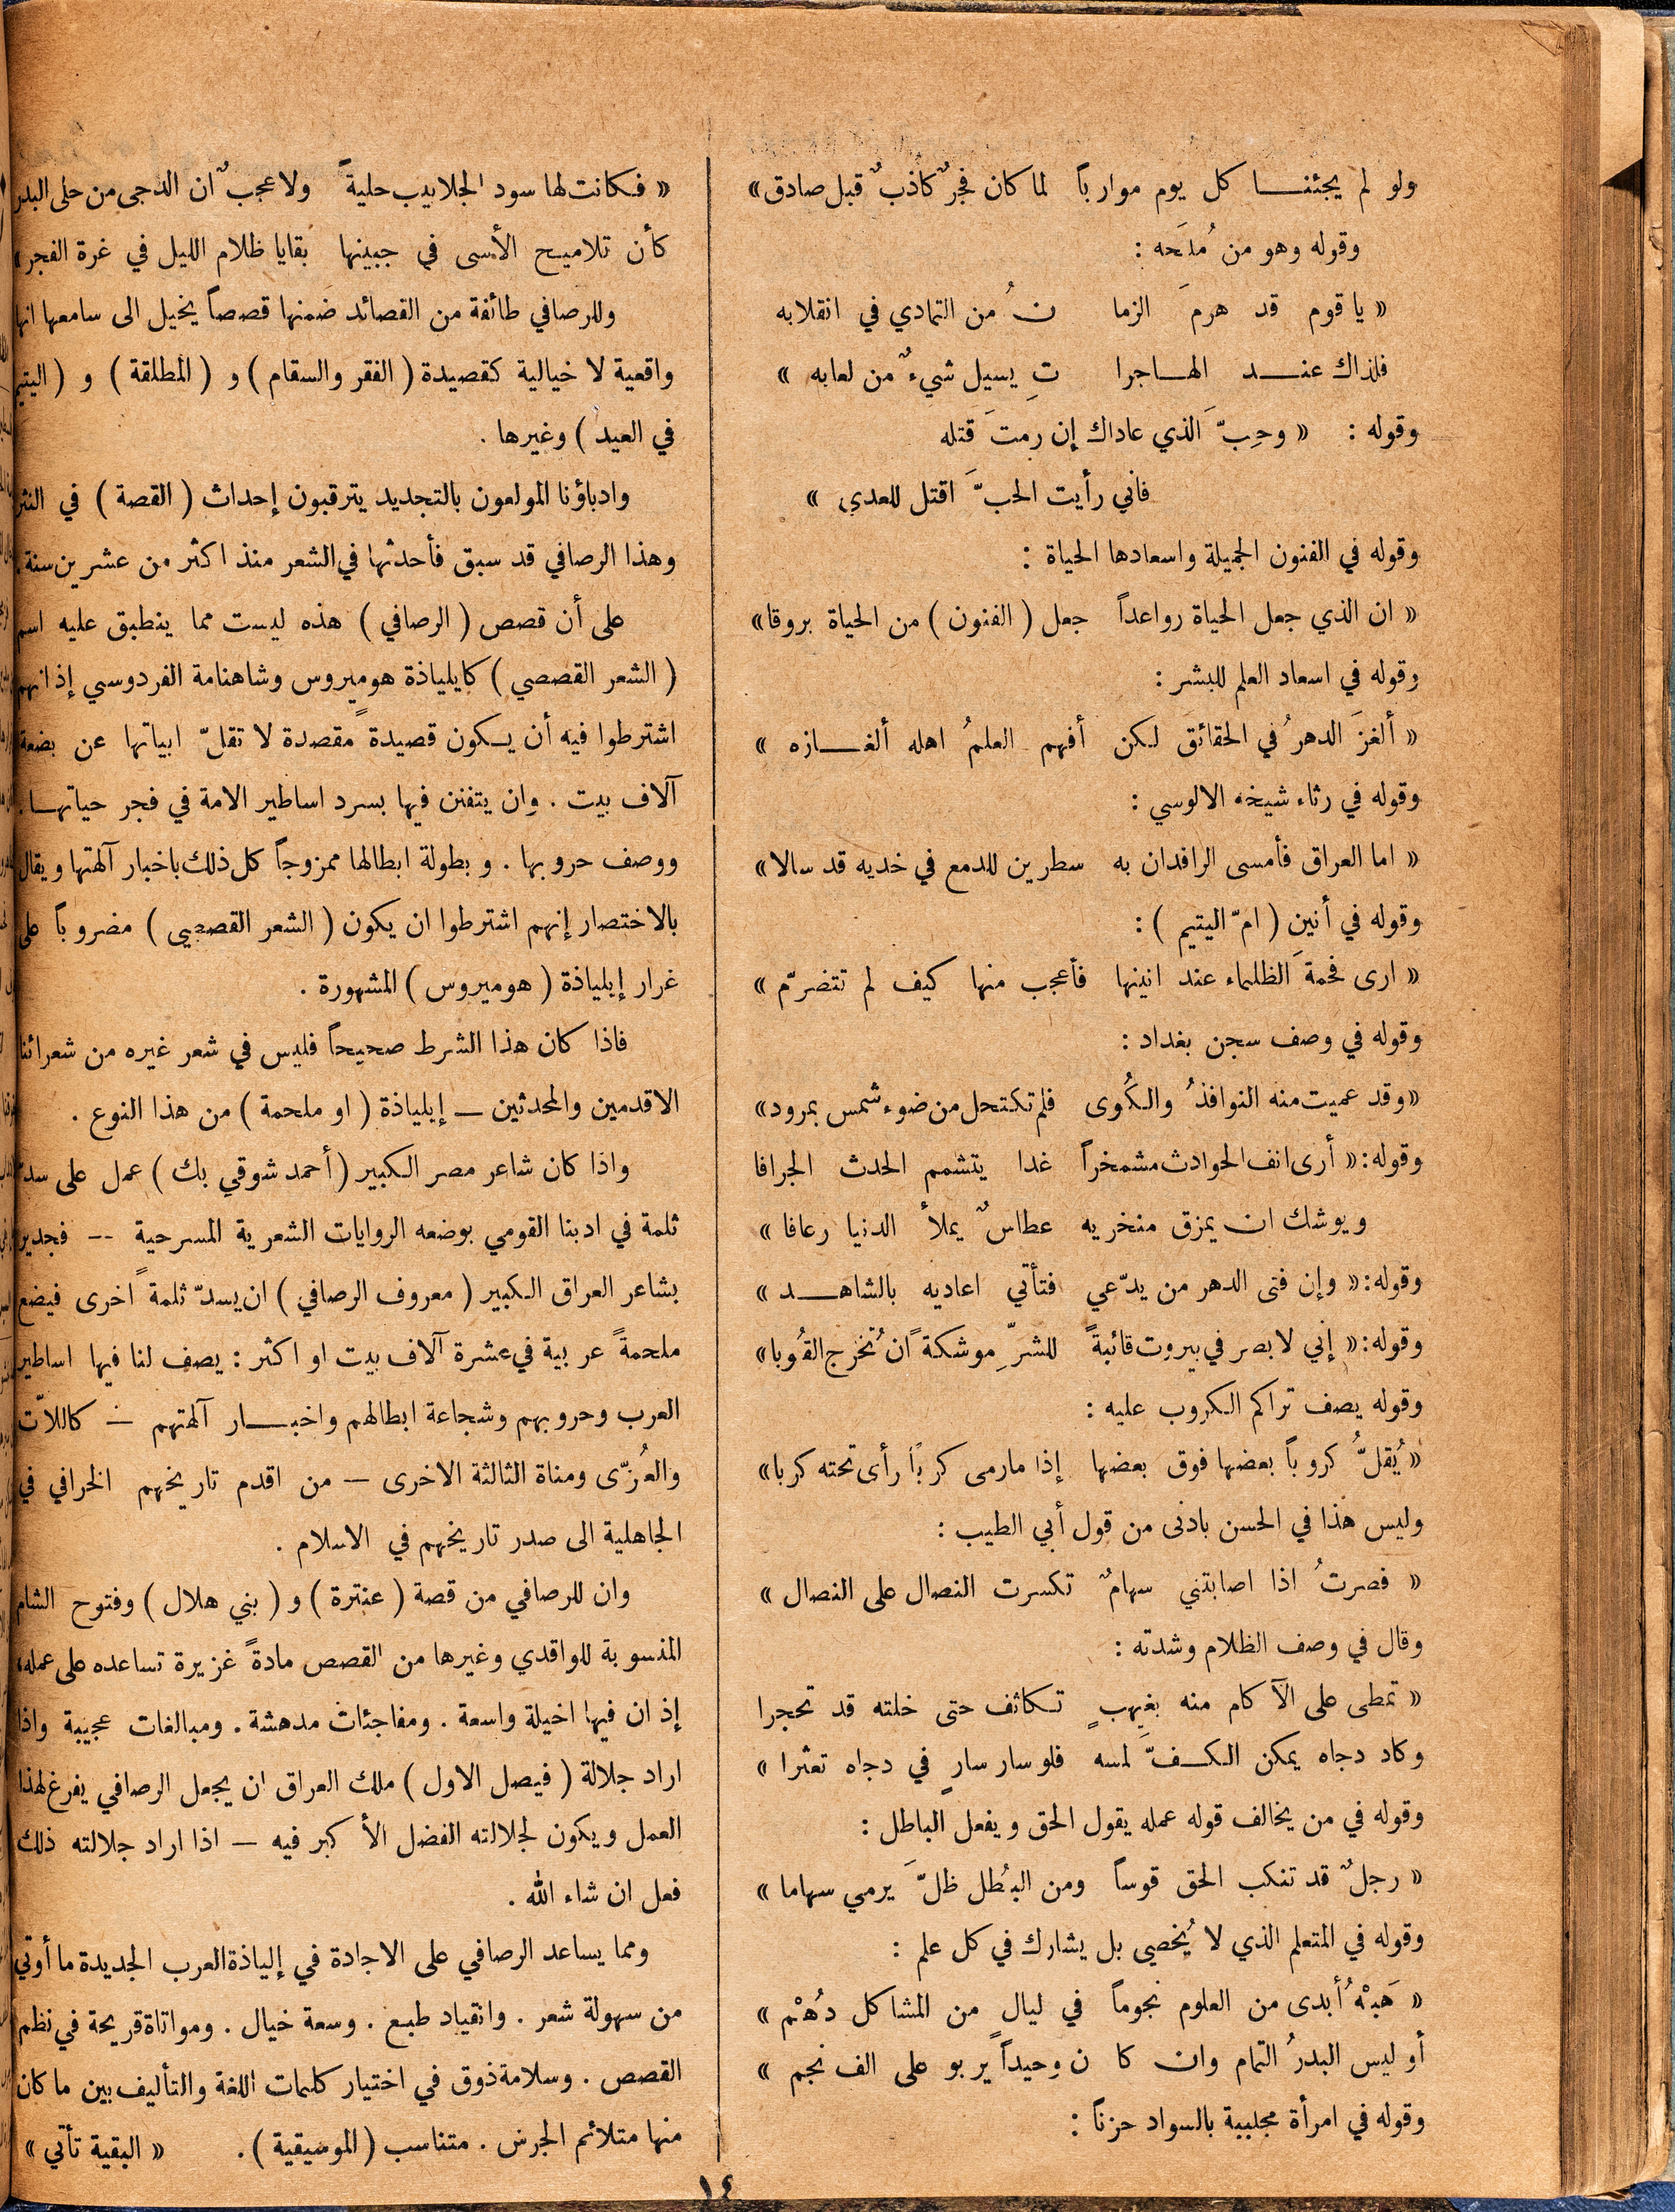 ولو لم يجئنا كل يوم موارباً لما كان فجرٌ كاذبٌ قبل صادق»
وقوله وهو من مُلَحه :
« يا قوم قد هرمَ الزما نُ من التمادي في انقلابه
فلذاك عند الهاجرا تِ يسيل شيءٌ من لعابه »
وقوله : « وحِبّ الذي عاداك إن رمتَ قتله
فاني رأيت الحبّ اقتل للعدى »
وقوله في الفنون الجميلة واسعادها الحياة :
« ان الذي جعل الحياة رواعداً جعل ( الفنون ) من الحياة بروقا»
وقوله في اسعاد العلم للبشر :
« ألغزَ الدهرُ في الحقائق لكن أفهم العلمُ اهله ألغازه »
وقوله في رثاء شيخه الالوسي :
« اما العراق فأمسى الرافدان به سطرين للدمع في خديه قد سالا»
وقوله في أنين ( امّ اليتيم ) :
« ارى فحمةَ الظلماء عند انينها فأعجب منها كيف لم تتضرّم »
وقوله في وصف سجن بغداد :
«وقد عميت منه النوافذُ والكُوى فلم تكتحل من ضوء شمس بمرود»
وقوله: « أرى انف الحوادث مشمخراً غدا يتشمم الحدث الجرافا
ويوشك ان يمزق منخريه عطاسٌ يملأ الدنيا رعافا »
وقوله: « وإن فتى الدهر من يدّعي فتأتي اعاديه بالشاهد »
وقوله: « إني لابصر في بيروت قائبةً للشرّ موشكةً ان تُخرج القُوبا»
وقوله يصف تراكم الكروب عليه :
« يُقلُّ كروباً بعضها فوق بعضها إذا ما رمى كرباً رأى تحته كربا»
وليس هذا في الحسن بادنى من قول أبي الطيب :
« فصرتُ اذا اصابتني سهامٌ تكسرت النصال على النصال »
وقال في وصف الظلام وشدته :
« تمطى على الآكام منه بغيهبٍ تكاثف حتى خلته قد تحجرا
وكاد دجاه يمكن الكفَّ لمسه فلو سار سارٍ في دجاه تعثرا »
وقوله في من يخالف قوله عمله يقول الحق ويفعل الباطل :
« رجلٌ قد تنكب الحق قوساً ومن البُطل ظلَّ يرمي سهاما »
وقوله في المتعلم الذي لا يُخصي بل يشارك في كل علم :
« هَبْهُ أبدى من العلوم نجوماً في ليالٍ من المشاكل دُهْم »
أو ليس البدرُ التمام وان كا ن وحيداً يربو على الف نجم »
وقوله في امرأة مجلببة بالسواد حزناً :
« فكانت لها سود الجلابيب حليةً ولا عجبٌ ان الدجى من حلى البدر
كأن تلاميح الأسى في جبينها بقايا ظلام الليل في غرة الفجر»
وللرصافي طائفة من القصائد ضمنها قصصاً يخيل الى سامعها انها
واقعية لا خيالية كقصيدة ( الفقر والسقام ) و ( المطلقة ) و ( اليتيم
في العيد ) وغيرها .
وادباؤنا المولعون بالتجديد يترقبون إحداث ( القصة ) في النثر
وهذا الرصافي قد سبق فأحدثها في الشعر منذ اكثر من عشرين سنة.
على أن قصص ( الرصافي ) هذه ليست مما ينطبق عليه اسم
( الشعر القصصي ) كايلياذة هوميروس وشاهنامة الفردوسي إذ انهم
اشترطوا فيه أن يكون قصيدة مقصدة لا تقلّ ابياتها عن بضعة
آلاف بيت . وان يتفنن فيها بسرد اساطير الامة في فجر حياتها.
ووصف حروبها . وبطولة ابطالها ممزوجاً كل ذلك باخبار آلهتها ويقال
بالاختصار إنهم اشترطوا ان يكون ( الشعر القصصي ) مضروباً على
غرار إيلياذة ( هوميروس ) المشهورة .
فاذا كان هذا الشرط صحيحاً فليس في شعر غيره من شعرائنا
الاقدمين والمحدثين — إيلياذة ( او ملحمة ) من هذا النوع .
واذا كان شاعر مصر الكبير ( أحمد شوقي بك ) عمل على سدّ
ثلمة في ادبنا القومي بوضعه الروايات الشعرية المسرحية -- فجدير
بشاعر العراق الكبير ( معروف الرصافي ) ان يسدّ ثلمةً اخرى فيضع
ملحمةً عربية في عشرة آلاف بيت او اكثر : يصف لنا فيها اساطير
العرب وحروبهم وشجاعة ابطالهم واخبار آلهتهم — كاللاّت
والعُزّى ومناة الثالثة الاخرى — من اقدم تاريخهم الخرافي في
الجاهلية الى صدر تاريخهم في الاسلام .
وان للرصافي من قصة ( عنترة ) و ( بني هلال ) وفتوح الشام
المنسوبة للواقدي وغيرها من القصص مادةً غزيرة تساعده على عمله،
إذ ان فيها اخيلة واسعة . ومفاجئات مدهشة . ومبالغات عجيبة واذا
اراد جلالة ( فيصل الاول ) ملك العراق ان يجعل الرصافي يفرغ لهذا
العمل ويكون لجلالته الفضل الأكبر فيه — اذا اراد جلالته ذلك
فعل ان شاء الله .
ومما يساعد الرصافي على الاجادة في إلياذة العرب الجديدة ما أوتي
من سهولة شعر . وانقياد طبع . وسعة خيال . ومواتاة قريحة في نظم
القصص . وسلامة ذوق في اختيار كلمات اللغة والتأليف بين ما كان
منها متلائم الجرس . متناسب ( الموسيقية ) . « البقية تأتي »
١٤